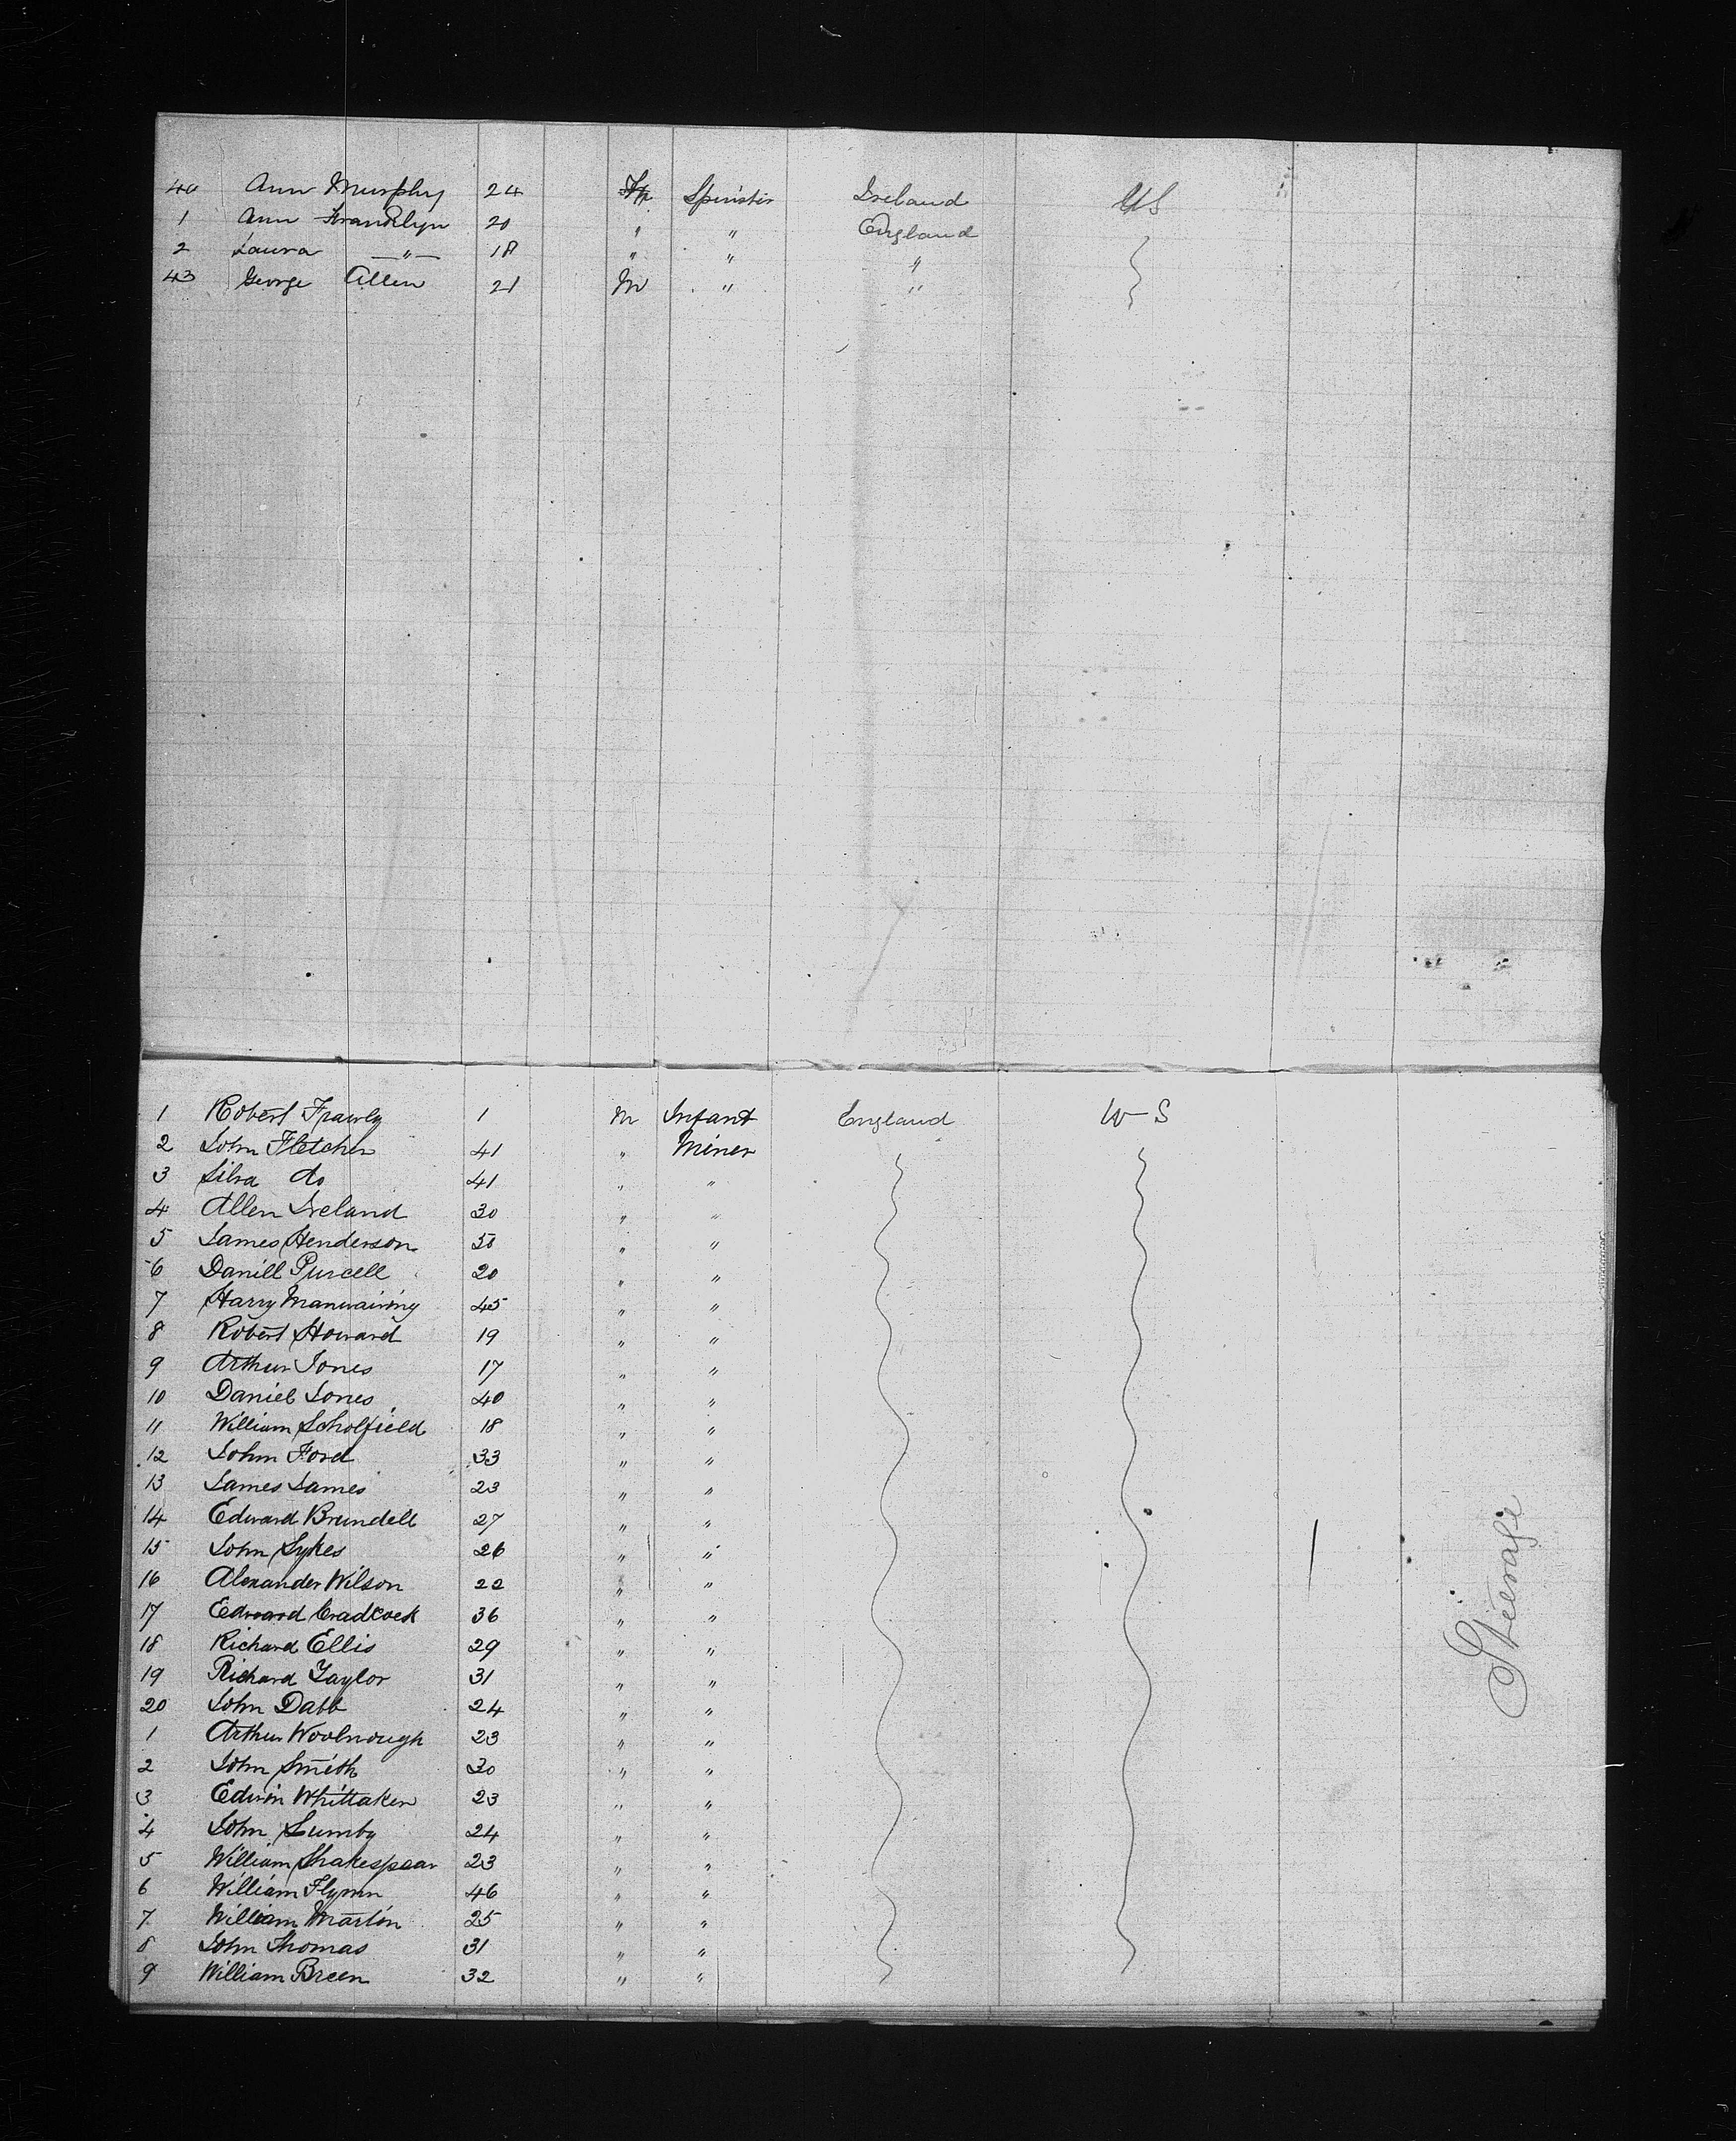 40 Ann Murphy 24 Spinster Ireland US
1 Ann Franklyn 20 " " England
2 Laura —"— 18 " " "
43 George Allen 21 M " "
1 Robert Frawly 1 M Infant England U S
2 John Fletcher 41 " Miner
3 Silva do 41 " "
4 Allen Ireland 30 " "
5 James Henderson 50 " "
6 Danill Purcell 20 " "
7 Harry Manwairing 45 " "
8 Robert Howard 19 " "
9 Arthur Jones 17 " "
10 Daniel Jones 40 " "
11 William Scholfield 18 " "
12 John Ford 33 " "
13 James James 23 " "
14 Edward Brundell 27 " "
15 John Sykes 26 " "
16 Alexander Wilson 22 " "
17 Edward Cradcock 36 " "
18 Richard Ellis 29 " "
19 Richard Taylor 31 " "
20 John Dabb 24 " "
1 Arthur Woolnough 23 " "
2 John Smith 30 " "
3 Edwin Whittaker 23 " "
4 John Lumby 24 " "
5 William Shakespear 23 " "
6 William Flynn 46 " "
7 William Martin 25 " "
8 John Thomas 31 " "
9 William Breen 32 " "
Steerage